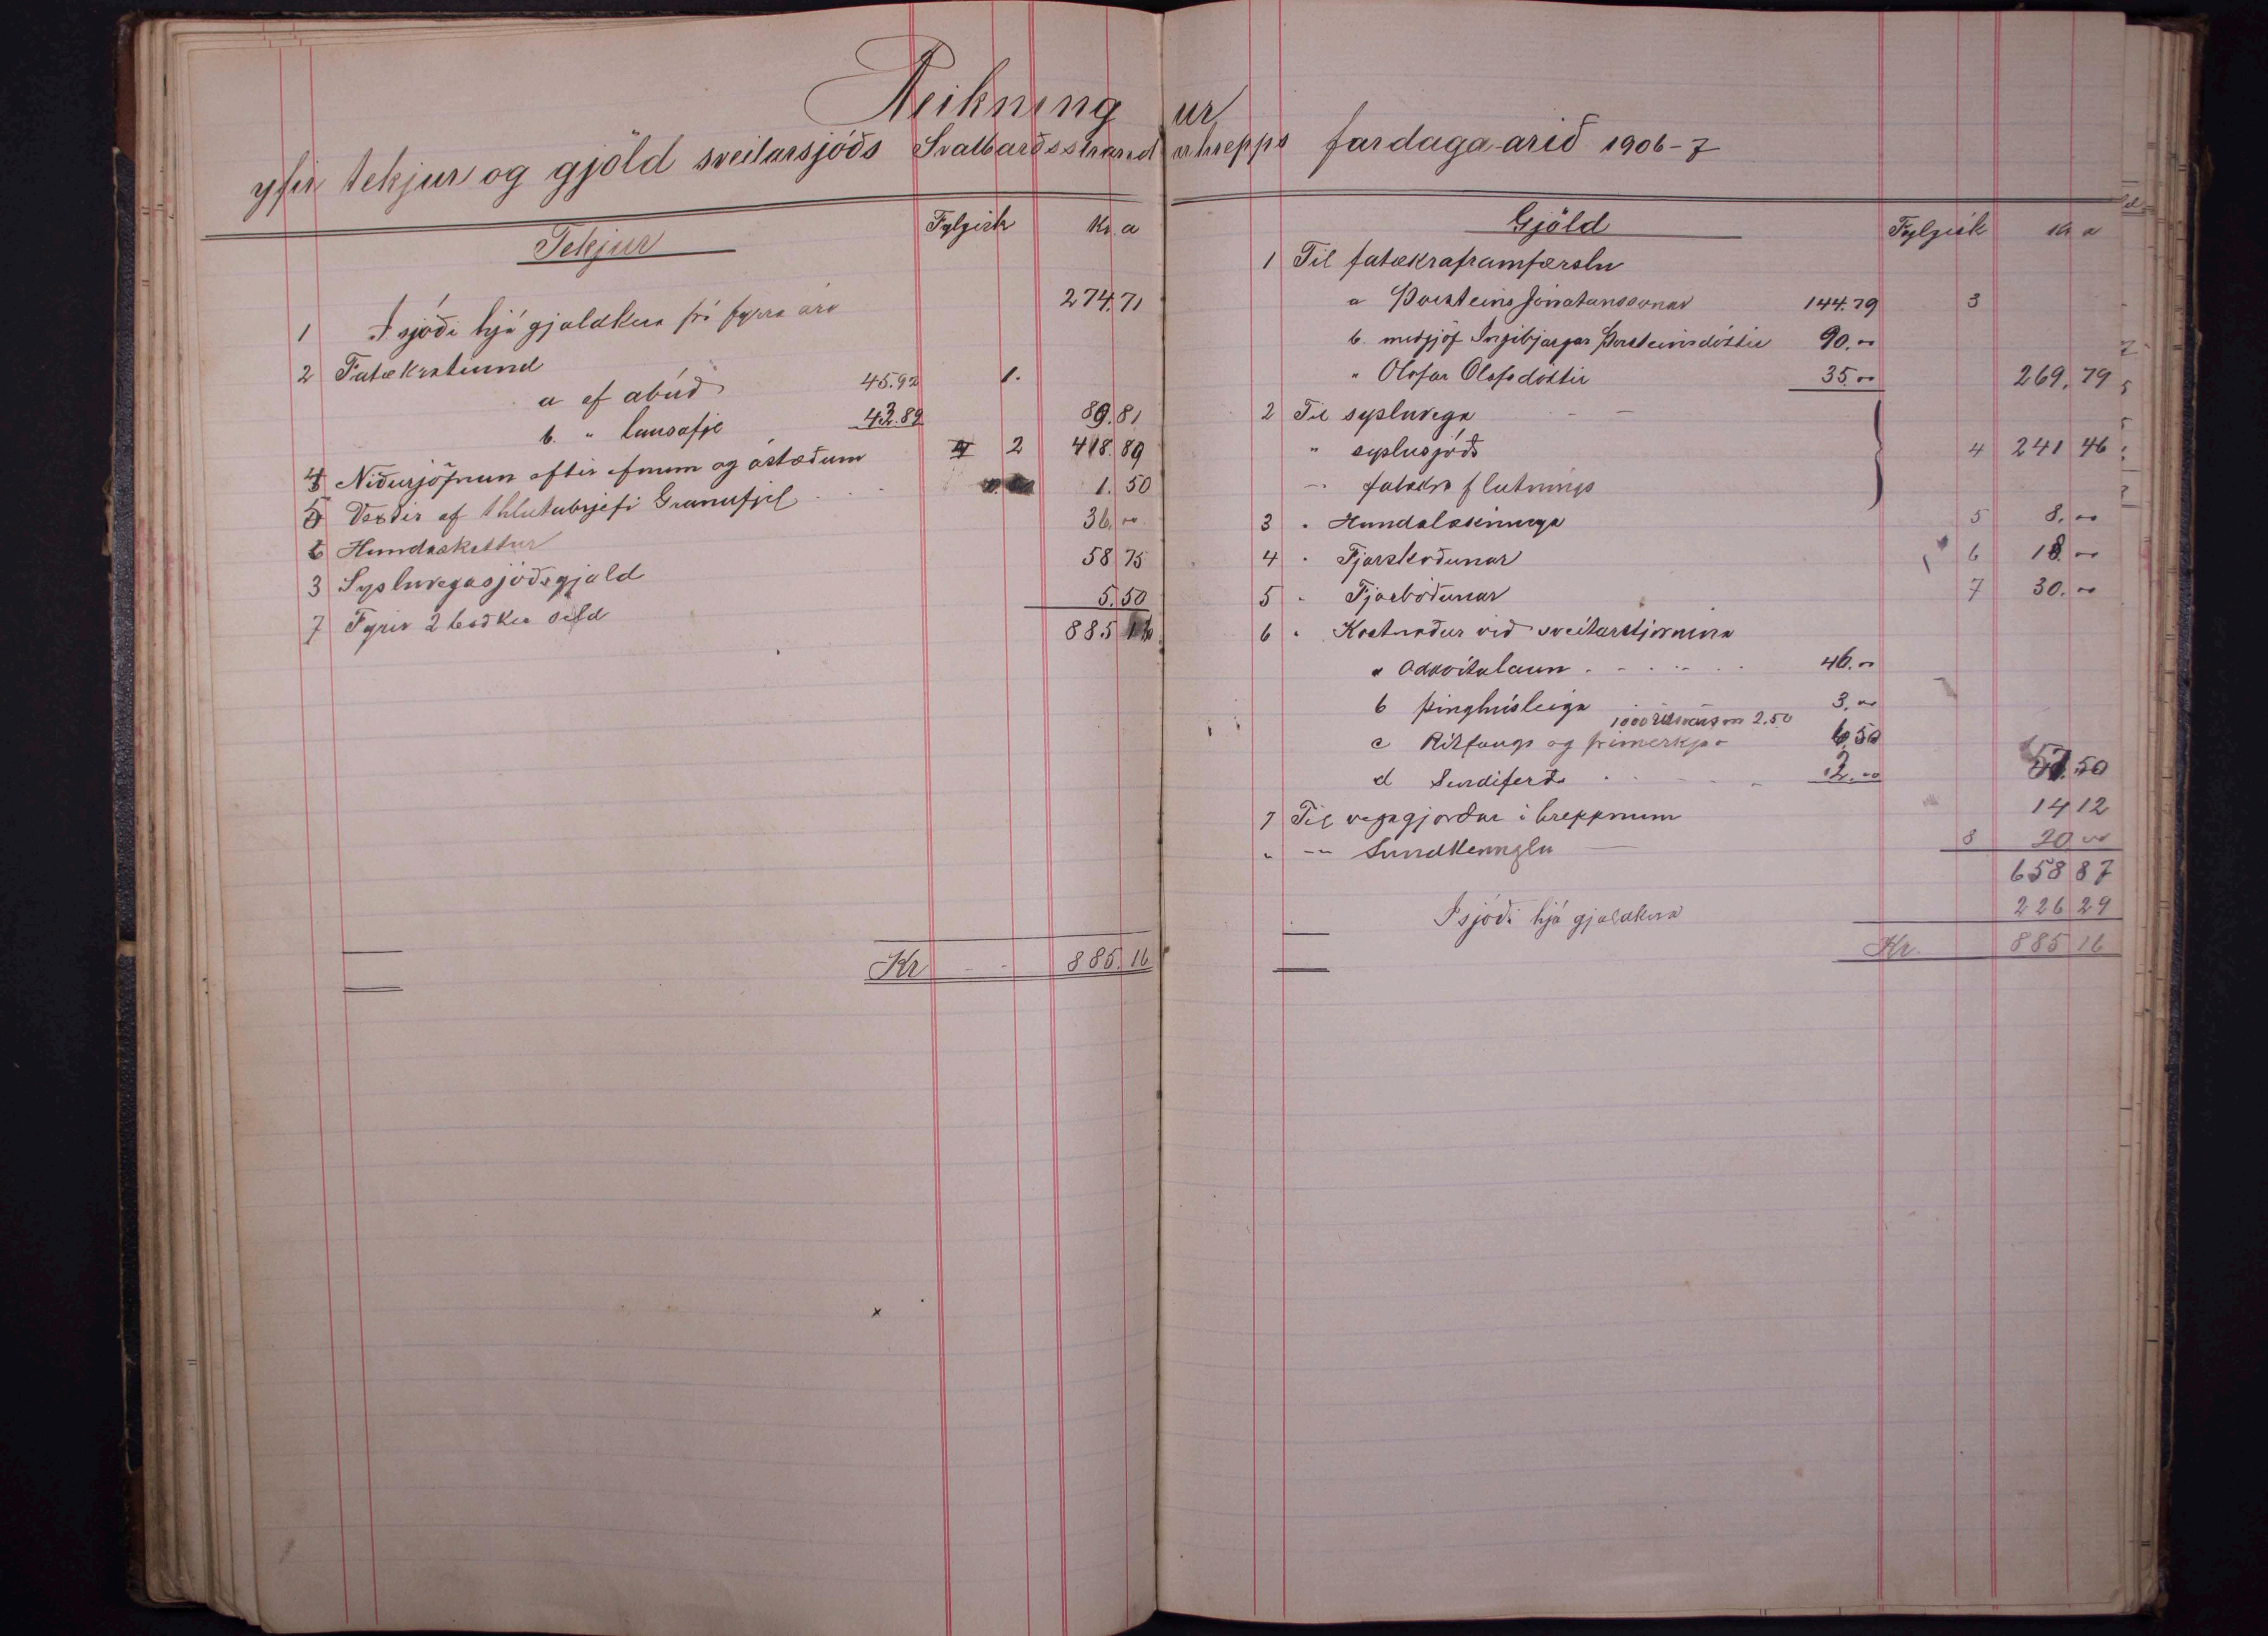 Reikningur
yfir tekjur og gjöld sveitarsjóðs Svalbarðsstrandarhrepps fardaga-árið 1906-7
Tekjur Fylgisk Kr. a
1 Í sjóði hjá gjaldkera frá fyrra ári 274.71
2 Fatækratiund
a af abúð 45.92 1.
b. " lausafje 43.89 89.81
4 Niðurjöfnun eftir efnum og ástæðum 2 418.89
5 Vextir af 1 hlutabrjefi Granufjel 1.50
6 Hundaskattur 36.00
3 Sysluvegasjóðsgjald 58 75
7 Fyrir 2 beðker síld 5.50
885 16
Kr 885.16
Gjöld Fylgisk Kr a
1 Til fatækraframfærslu
a Þorsteins Jónatanssonar 144.79 3
b. meðgjöf Ingibjargar Þorsteinsdóttir 90.00
" Olofar Olofsdóttir 35.00 269.79
2 Til sysluvega
" syslusjóðs 4 241 46
-- fatækra flutnings
3 " Hundalækninga 5 8.00
4 " Fjárskoðunar 6 18.00
5 " Fjárböðunar 7 30.00
6 " Kostnaður við sveitarstjórnina
a Oddvitalaun 46.00
b þinghúsleiga 3.00
1000 2.50
c Ritfanga og frimerkja 6.50
d Sendiferð 2.00 57.50
7 Til vegagjorðar i hreppnum 14 12
" -- Sundkennslu 8 20 00
658 87
Í sjóði hjá gjaldkera 226 29
Kr. 885 16